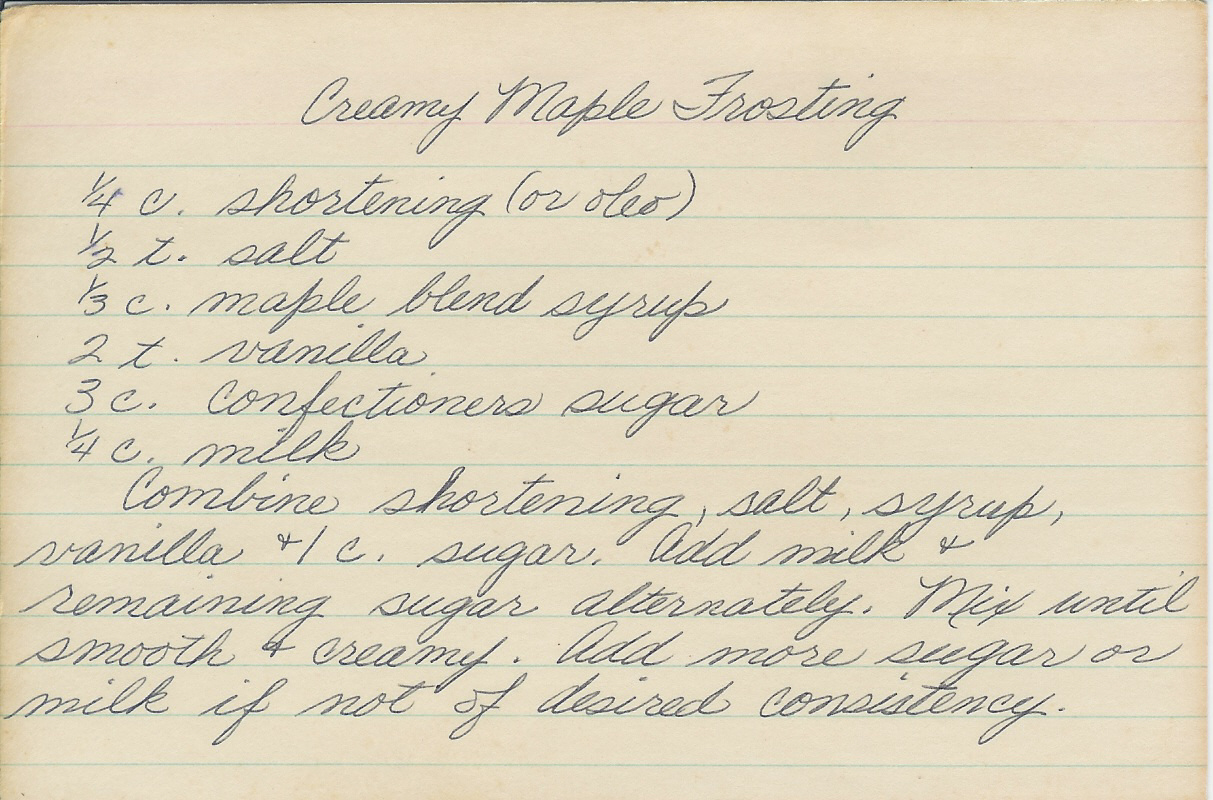 Creamy Maple Frosting
1/4 c. shortening (or oleo)
1/2 t. salt
1/3 c. maple blend syrup
2 t. vanilla
3 c. Confectioners sugar
1/4 c. milk
Combine shortening, salt, syrup,
vanilla & 1 c. sugar. Add milk &
remaining sugar alternately. Mix until
smooth & creamy. Add more sugar or
milk if not of desired consistency.